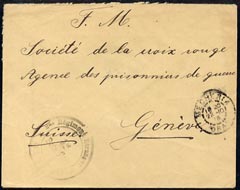 F. M.
Société de la croix rouge
Agence des prisonniers de guerre
Suisse Genève